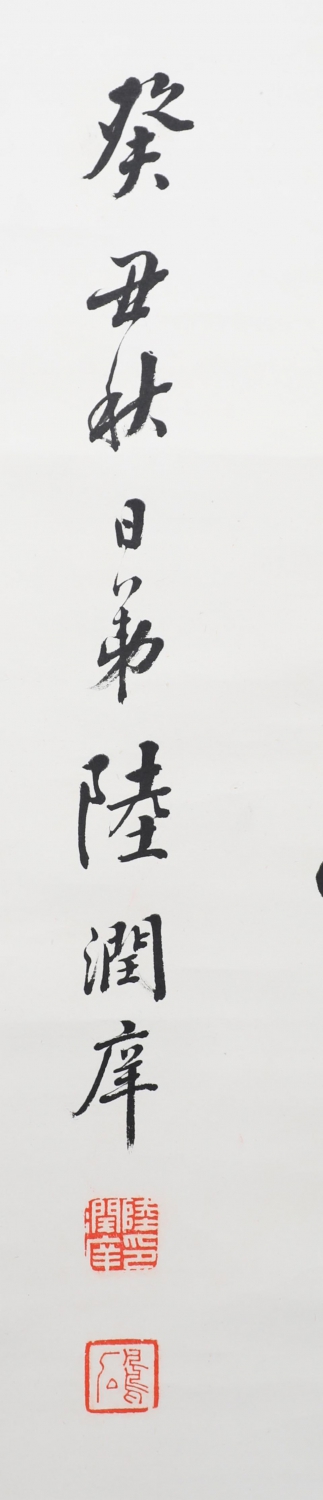 癸丑秋日弟陸潤庠
陸潤庠印